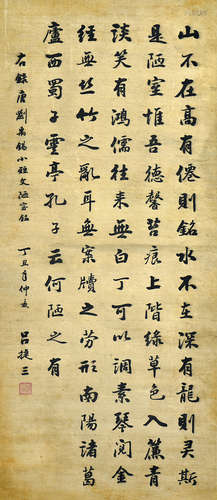 山不在高有僊則銘水不在深有龍則灵斯
是陋室惟吾德馨苔痕上階緑草色入簾青
談笑有鴻儒往来無白丁可以調素琴閱金
經無丝竹之亂耳無案牘之劳形南陽諸葛
廬西蜀子雲亭孔子云何陋之有
右錄唐劉禹錫小短文陋室銘
丁丑仲 呂捷三